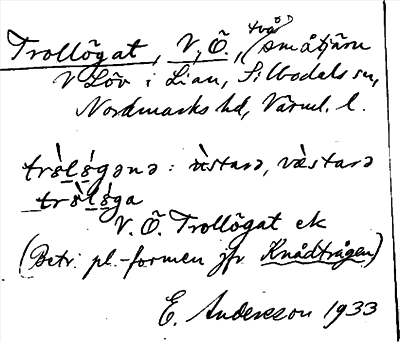 Trollögat, V, Ö., (två) småtjärn
V Löv i Lian, Silbodals sn,
Nordmarks hd, Värml. l.
trɵ̀lɵ́gənə : ùstarə, væ̀starə
trɵ̀lɵ́ga
V. Ö. Trollögat ek
(Betr. pl.-formen jfr Knådtrågen)
E. Andersson 1933